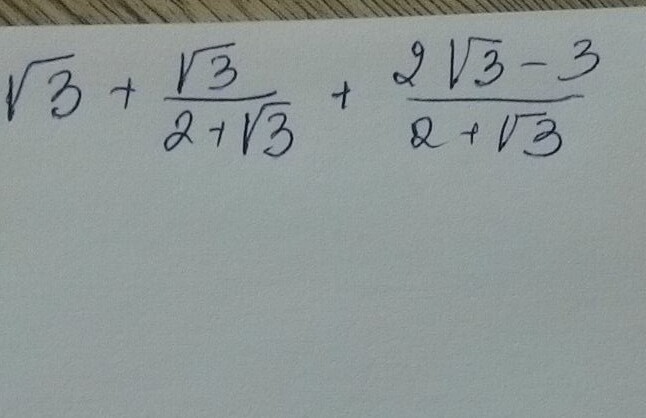 √3 + √3/(2+√3) + (2√3 - 3)/(2+√3)